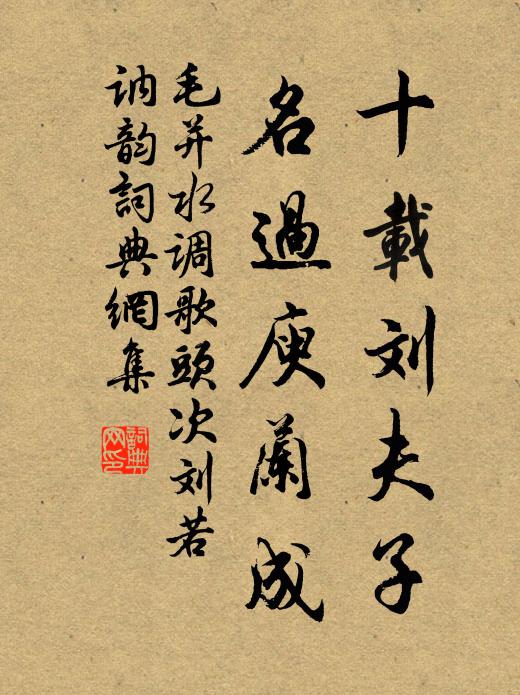 十載刘夫子
名過庾蘭成
毛并水调歌頭次刘若
訥韵詞典網集
詞典網印